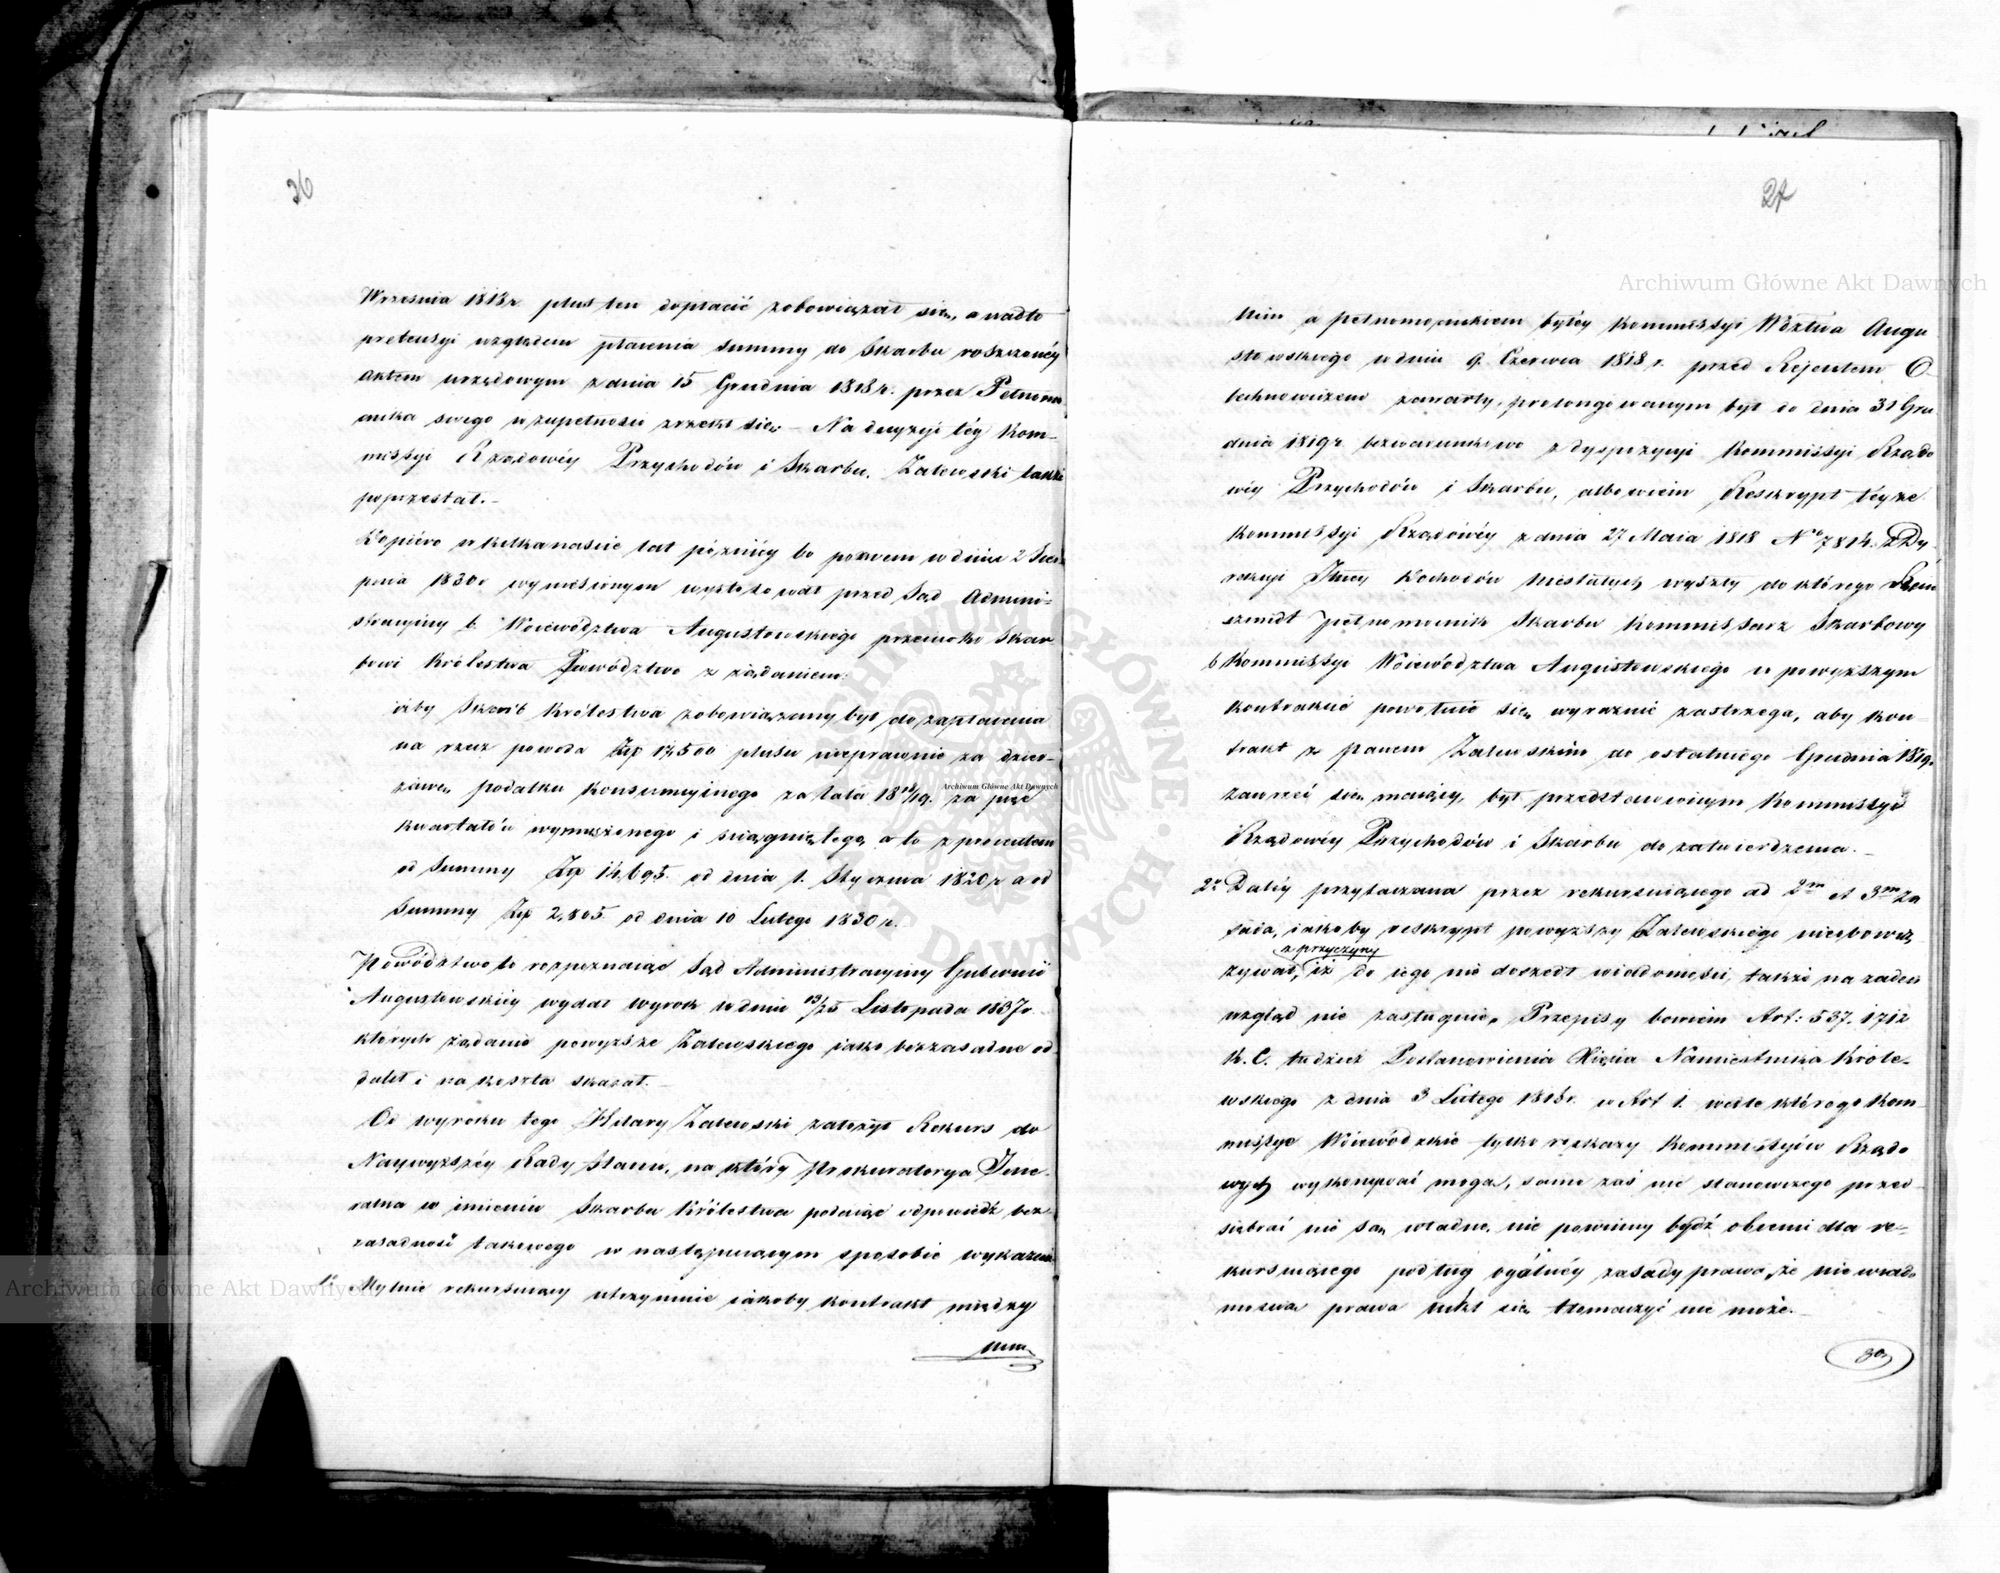 26
Września 1818 r. plus ten dopłacić zobowiązał się, a nadto
pretensyi względem płacenia summy do Skarbu roszczonéy
aktem urzędowym z dnia 15 Grudnia 1818 r. przez Pełnomo
cnika swego w zupełności zrzekł się. – Na decyzyi téy Kom-
missyi Rządowéy Przychodów i Skarbu, Zalewski także
poprzestał. –
Dopiéro w kilkanaście lat późniéy bo pozwem w dniu 2 Sier
pnia 1830 r. wyniesionym wystosował przed Sąd Admini-
stracyiny b. Województwa Augustowskiego przeciwko Skar
bowi Królestwa Powództwo z żądaniem:
ażby Skarb Królestwa zobowiązany był do zapłacenia
na rzecz powoda Złp 17,500 plusu nieprawnie za dzier-
żawę podatku konsumcyinego za lata 18 18/19. za pięć
kwartałów wymuszonego i ściągniętego, a to z procentem
od Summy Złp 14,695. od dnia 1. Stycznia 1820 r. a od
Summy Złp 2,805. od dnia 10 Lutego 1830 r.
Powództwo to rozpoznaiąc Sąd Administracyiny Gubernii
Augustowskiéy wydał wyrok w dniu 13/25 Listopada 1837 r.
których żądanie powyższe Zalewskiego iako bezzasadne od
dalił i na koszta skazał. –
Od wyroku tego Hilary Zalewski założył Rekurs do
Naywyższéy Rady Stanu, na który Prokuratorya Jene-
ralna w imieniu Skarbu Królestwa podaiąc odpowiedź bez-
zasadność takowego w następuiącym sposobie wykazała
1o Mylnie rekursuiący utrzymuie iakoby kontrakt między
nim
27
nim a pełnomocnikiem byłéy Kommissyi Wdztwa Augu
stowskiego w dniu 9. Czerwca 1818 r. przed Rejentem O-
lechnowiczem zawarty, prolongowanym był do dnia 31 Gru
dnia 1819 r. bezwarunkowo z dyspozycyi Kommissyi Rządo
wéy Przychodów i Skarbu, albowiem Reskrypt téyże
Kommissyi Rządowéy z dnia 27 Maia 1818 No 7814. z Dy
rekcyi Jlnéy Dochodów niestałych wyszły do którego
Pełnomocnik Skarbu Kommissarz Skarbowy
b Kommissyi Województwa Augustowskiego w powyższym
kontrakcie powołuie się, wyraźnie zastrzega, aby kon-
trakt z Panem Zalewskim do ostatniego Grudnia 1819
zawrzeć się maiący, był przedstawionym Kommissyi
Rządowéy Przychodów i Skarbu do zatwierdzenia. –
2o Daléy przytaczana przez rekursuiącego ad 2m et 3m za
sada, iakoby reskrypt powyższy Zalewskiego nieobowią
z przyczyny
zywał, iż do iego nie doszedł wiadomości, także na żaden
wzgląd nie zasługuie. Przepisy bowiem Art: 537. 1712
K. C. tudzież Postanowienia Xięcia Namiestnika Króle-
wskiego z dnia 3 Lutego 1816 r. w Art 1. wedle którego Kom-
missye Wojewódzkie tylko rozkazy Kommissyów Rządo
wych wykonywać mogą, same zaś nic stanowczego przed-
siębrać nie są władne, nie powinny bydź obcemi dla re-
kursuiącego podług ogólnéy zasady prawa, że niewiado
mością prawa nikt się tłomaczyć nie może. –
3o
Archiwum Główne Akt Dawnych
Archiwum Główne Akt Dawnych
Archiwum Główne Akt Dawnych
ARCHIWUM GŁÓWNE AKT DAWNYCH